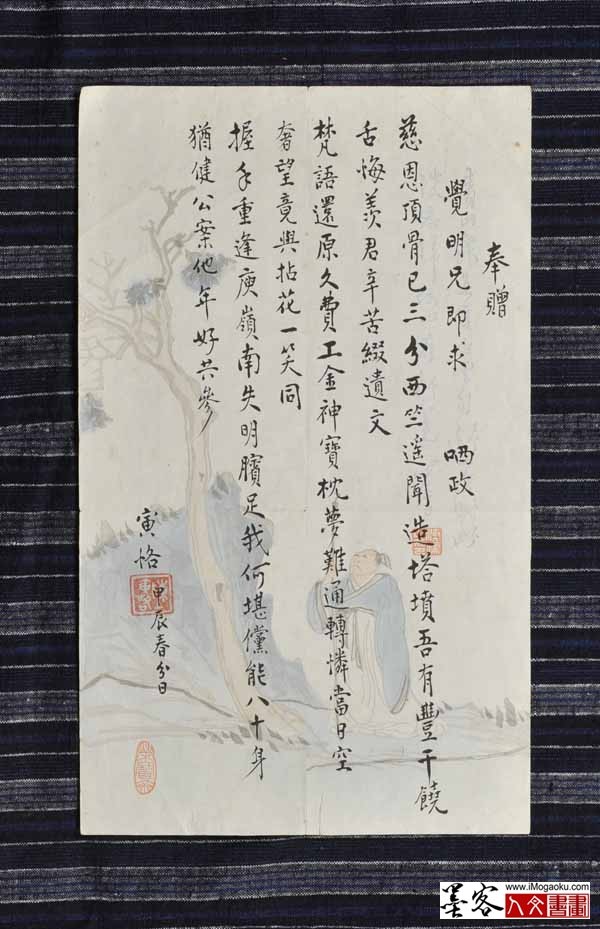 奉贈
覺明兄即求　哂政
慈恩頂骨已三分西竺遥聞造塔墳吾有豐干饒
舌悔羨君辛苦綴遺文
梵語還原久費工金神寶枕夢難通轉憐當日空
奢望竟與拈花一笑同
握手重逢庾嶺南失明臏足我何堪儻能八十身
猶健公案他年好共參
寅恪
甲辰春分日
墨客
www.iMogaoku.com
人文書畫